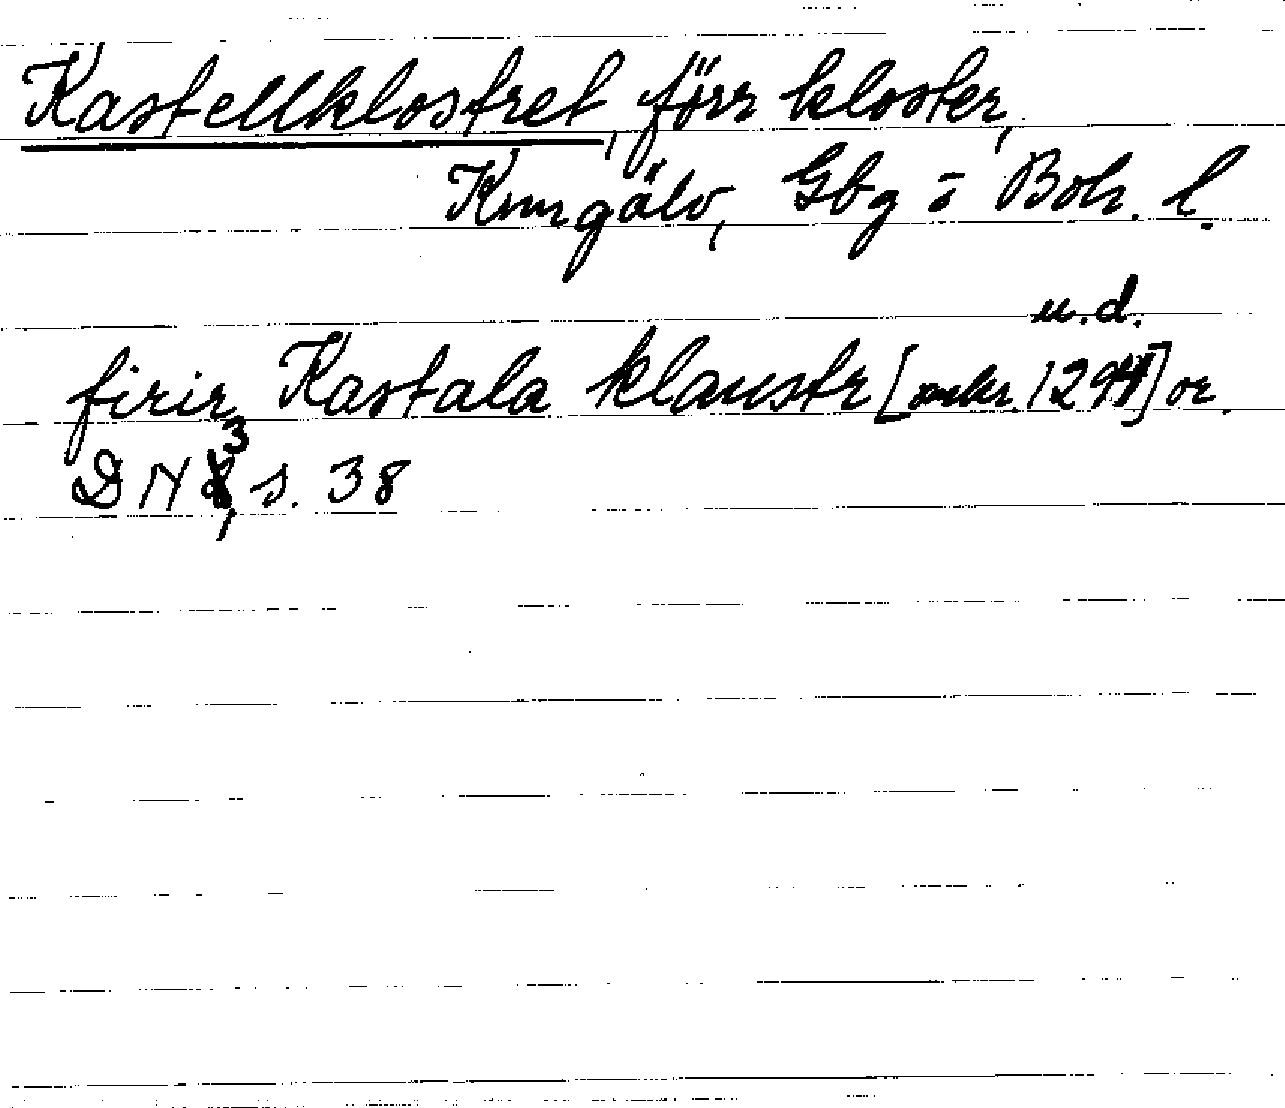 Kastellklostret, förr kloster,
Kungälv, Gbg o Boh. l.
u.d.
firir Kastala klaustr [omkr. 1294] or.
DN 3, s. 38